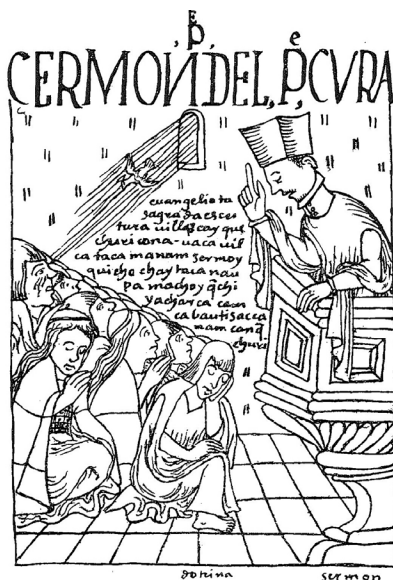 CERMON DEL P.E CVRA
euangelio ta
sagrada escri
tura uillascay que
churicona - uaca uil
ca tacamanam sermoy
quicho chay taca nau
pa machoy q̃chi
yacharca can
ca bautisacca
nam canq̃
churi
dotrina
sermon